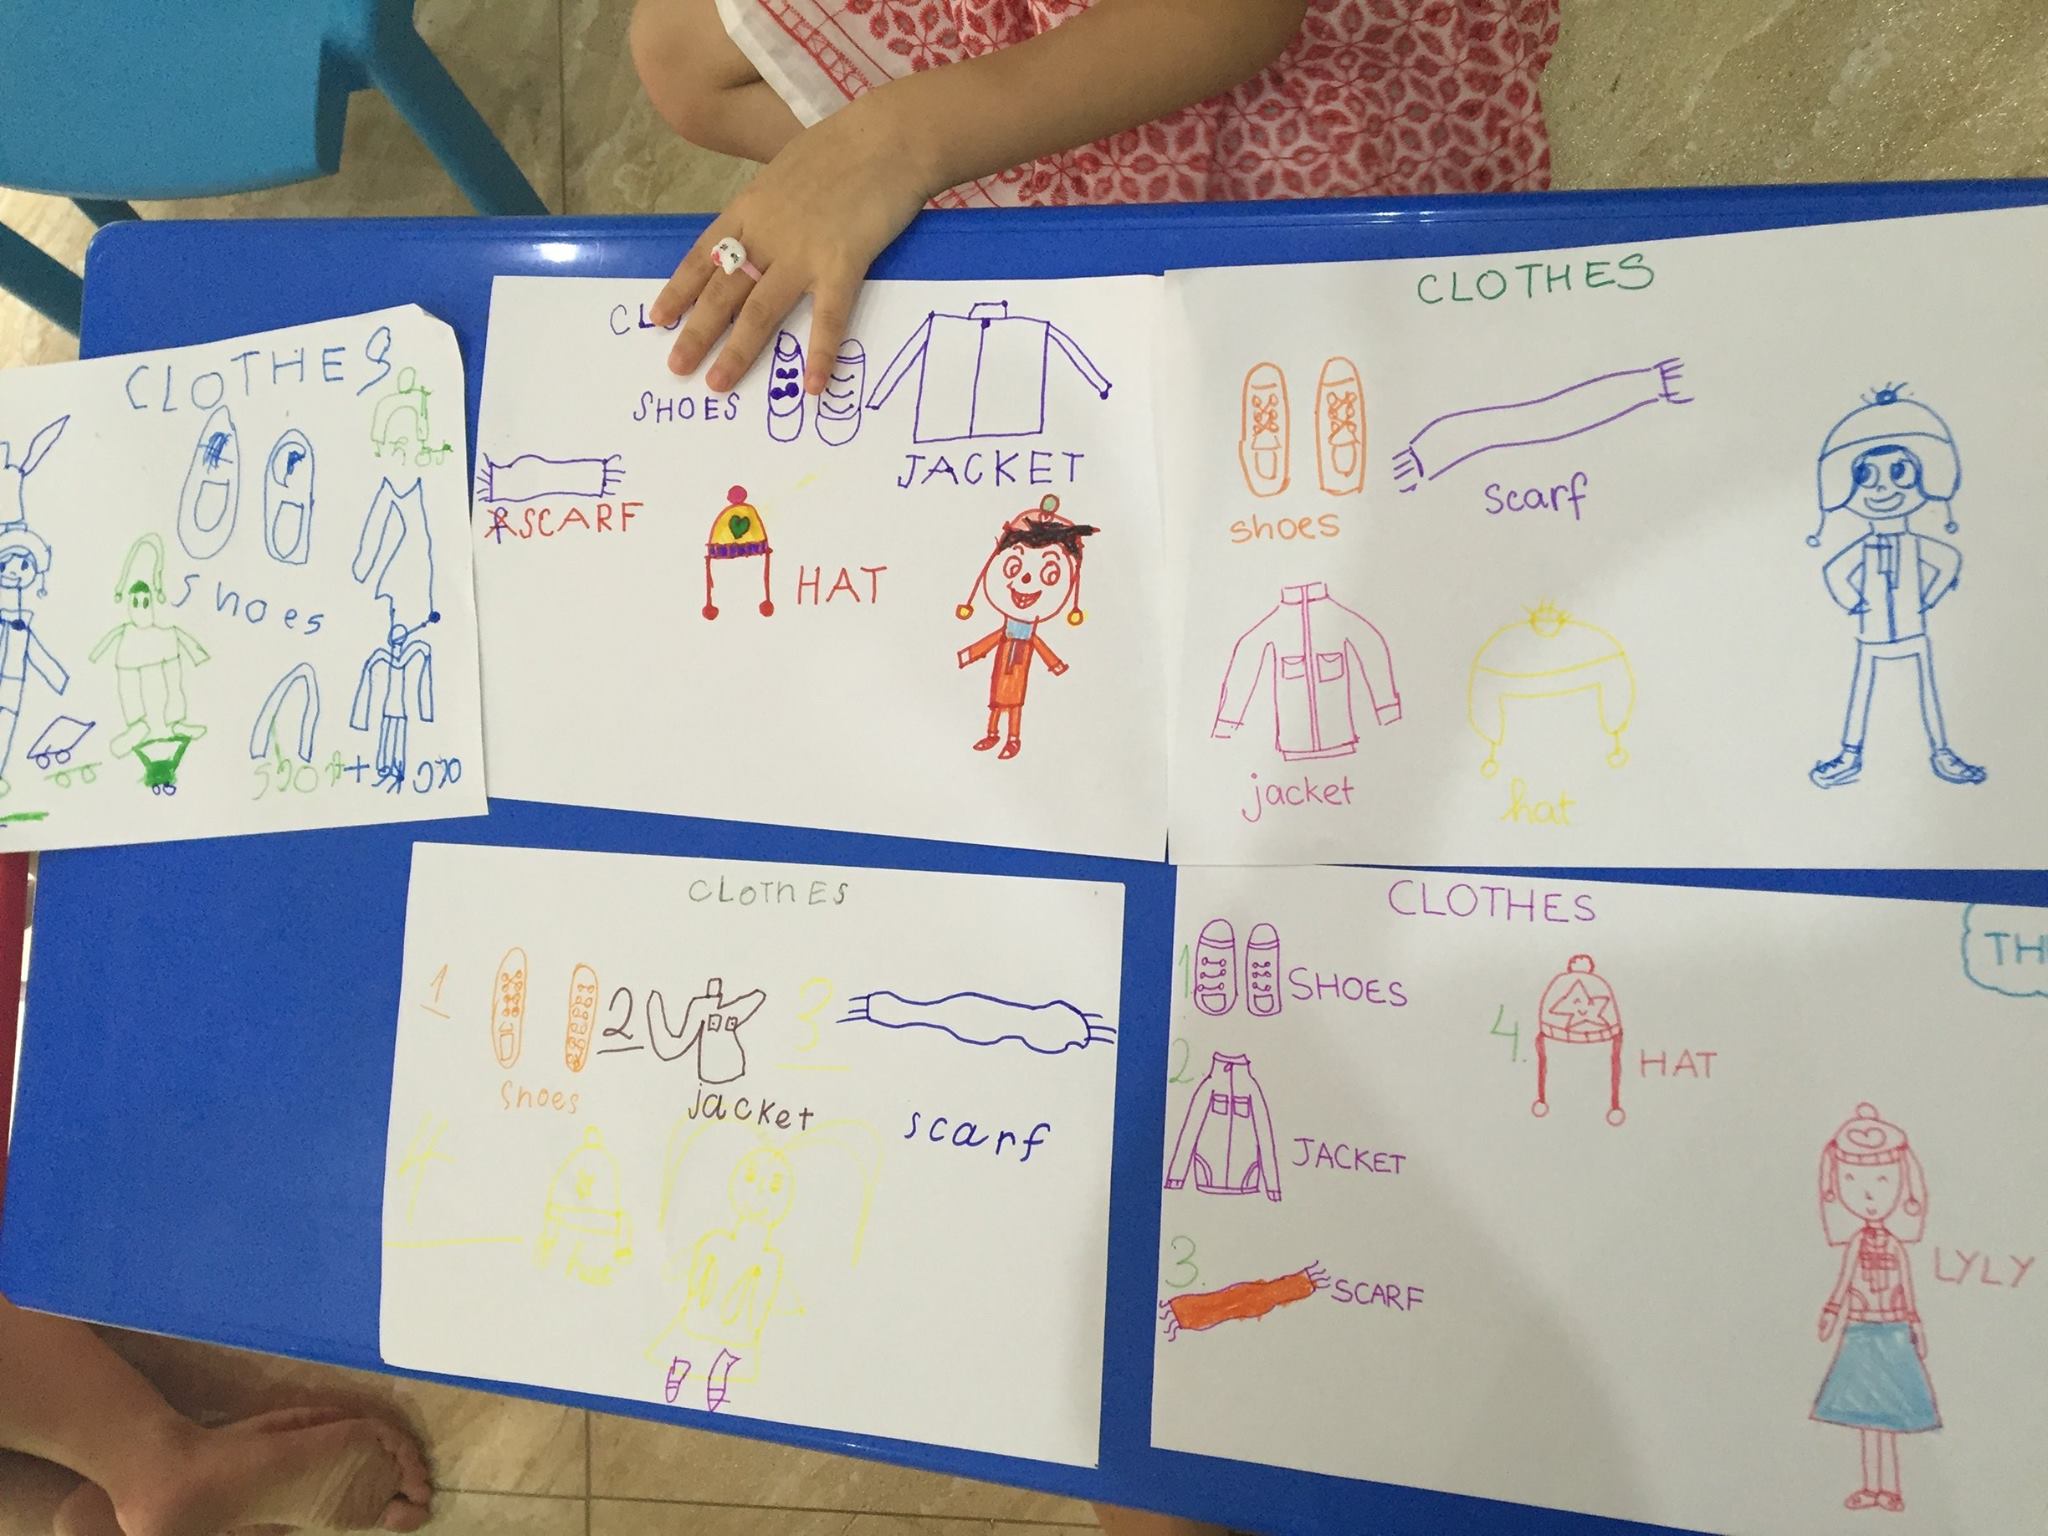 CLOTHES
shoes
CLO
SHOES
JACKET
SCARF
HAT
CLOTHES
shoes
scarf
jacket
hat
CLOThES
1
2
3
shoes
jacket
scarf
4
hat
CLOTHES
1. SHOES
2. JACKET
3. SCARF
4. HAT
LYLY
TH